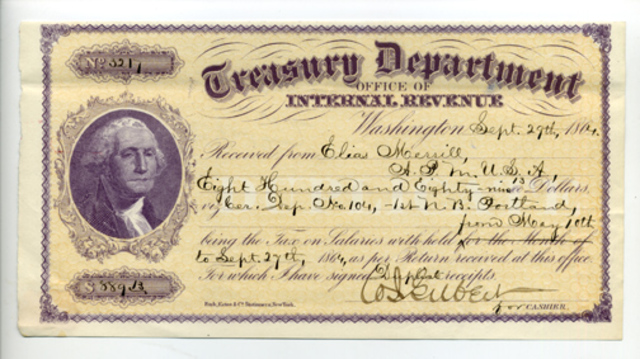 No 3217
Treasury Department
OFFICE OF
INTERNAL REVENUE
Washington Sept. 29th, 1864.
Received from Elias Merrill,
A. P. M. U. S. A.
Eight Hundred and Eighty nine 13 Dollars,
Cer. Dep. No. 104, 1st N. B. Portland,
from May 10th
being the Tax on Salaries withheld for the Month of
to Sept. 27th, 1864, as per Return received at this office.
For which I have signed Duplicate receipts.
$ 889.13
for CASHIER.